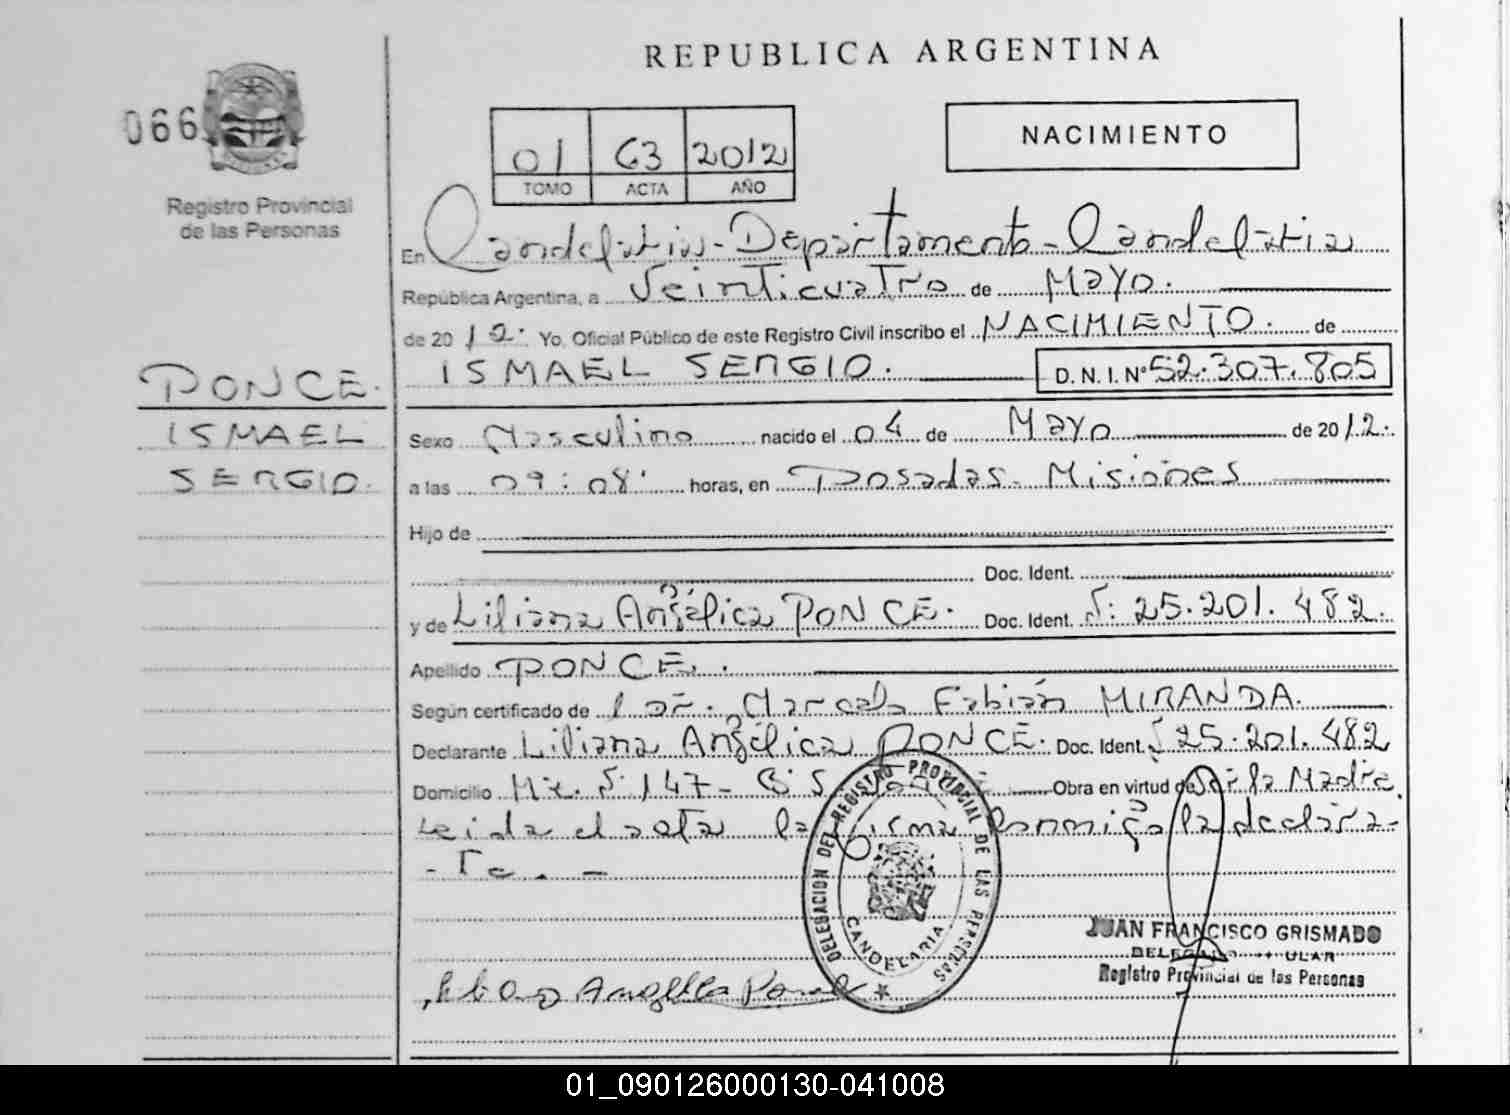 REPUBLICA ARGENTINA
066
Registro Provincial
de las Personas
01 63 2012
TOMO ACTA AÑO
NACIMIENTO
En Candelaria - Departamento - Candelaria
República Argentina, a Veinticuatro de Mayo.
de 2012. Yo, Oficial Público de este Registro Civil inscribo el NACIMIENTO. de
ISMAEL SERGIO. D.N.I. Nº 52.307.805
PONCE.
ISMAEL
SERGIO.
Sexo Masculino nacido el 04 de Mayo de 2012.
a las 09:08' horas, en Posadas - Misiones
Hijo de
Doc. Ident.
y de Liliana Angélica PONCE. Doc. Ident. Nº: 25.201.482.
Apellido PONCE.
Según certificado de Marcelo Fabián MIRANDA.
Declarante Liliana Angélica PONCE. Doc. Ident. 25.201.482
Domicilio 147- Obra en virtud de Ser la Madre.
Leida el acta la firma Conmigo la declara-
-Te. -
DELEGACION DEL REGISTRO PROVINCIAL DE LAS PERSONAS
CANDELARIA
Angélica Ponce
JUAN FRANCISCO GRISMADO
Registro Provincial de las Personas
01_090126000130-041008